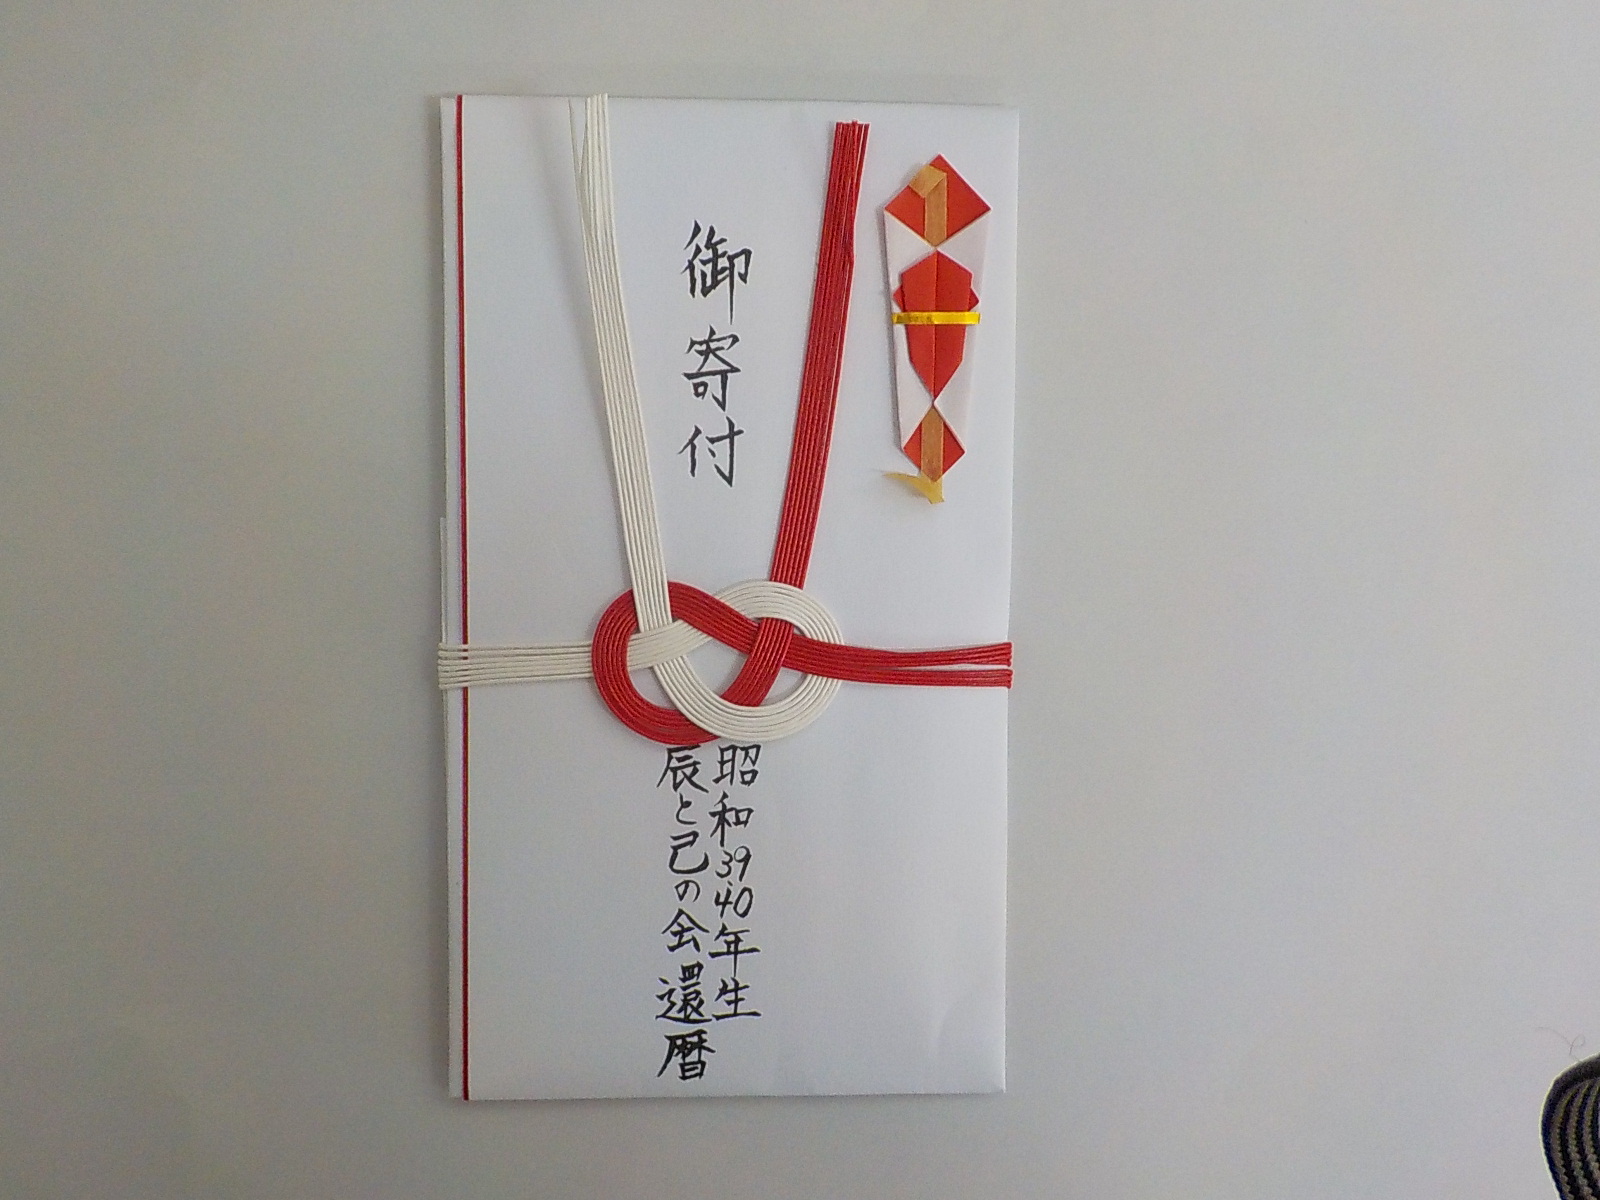 御寄付
昭和39.40年生
辰と己の会還暦